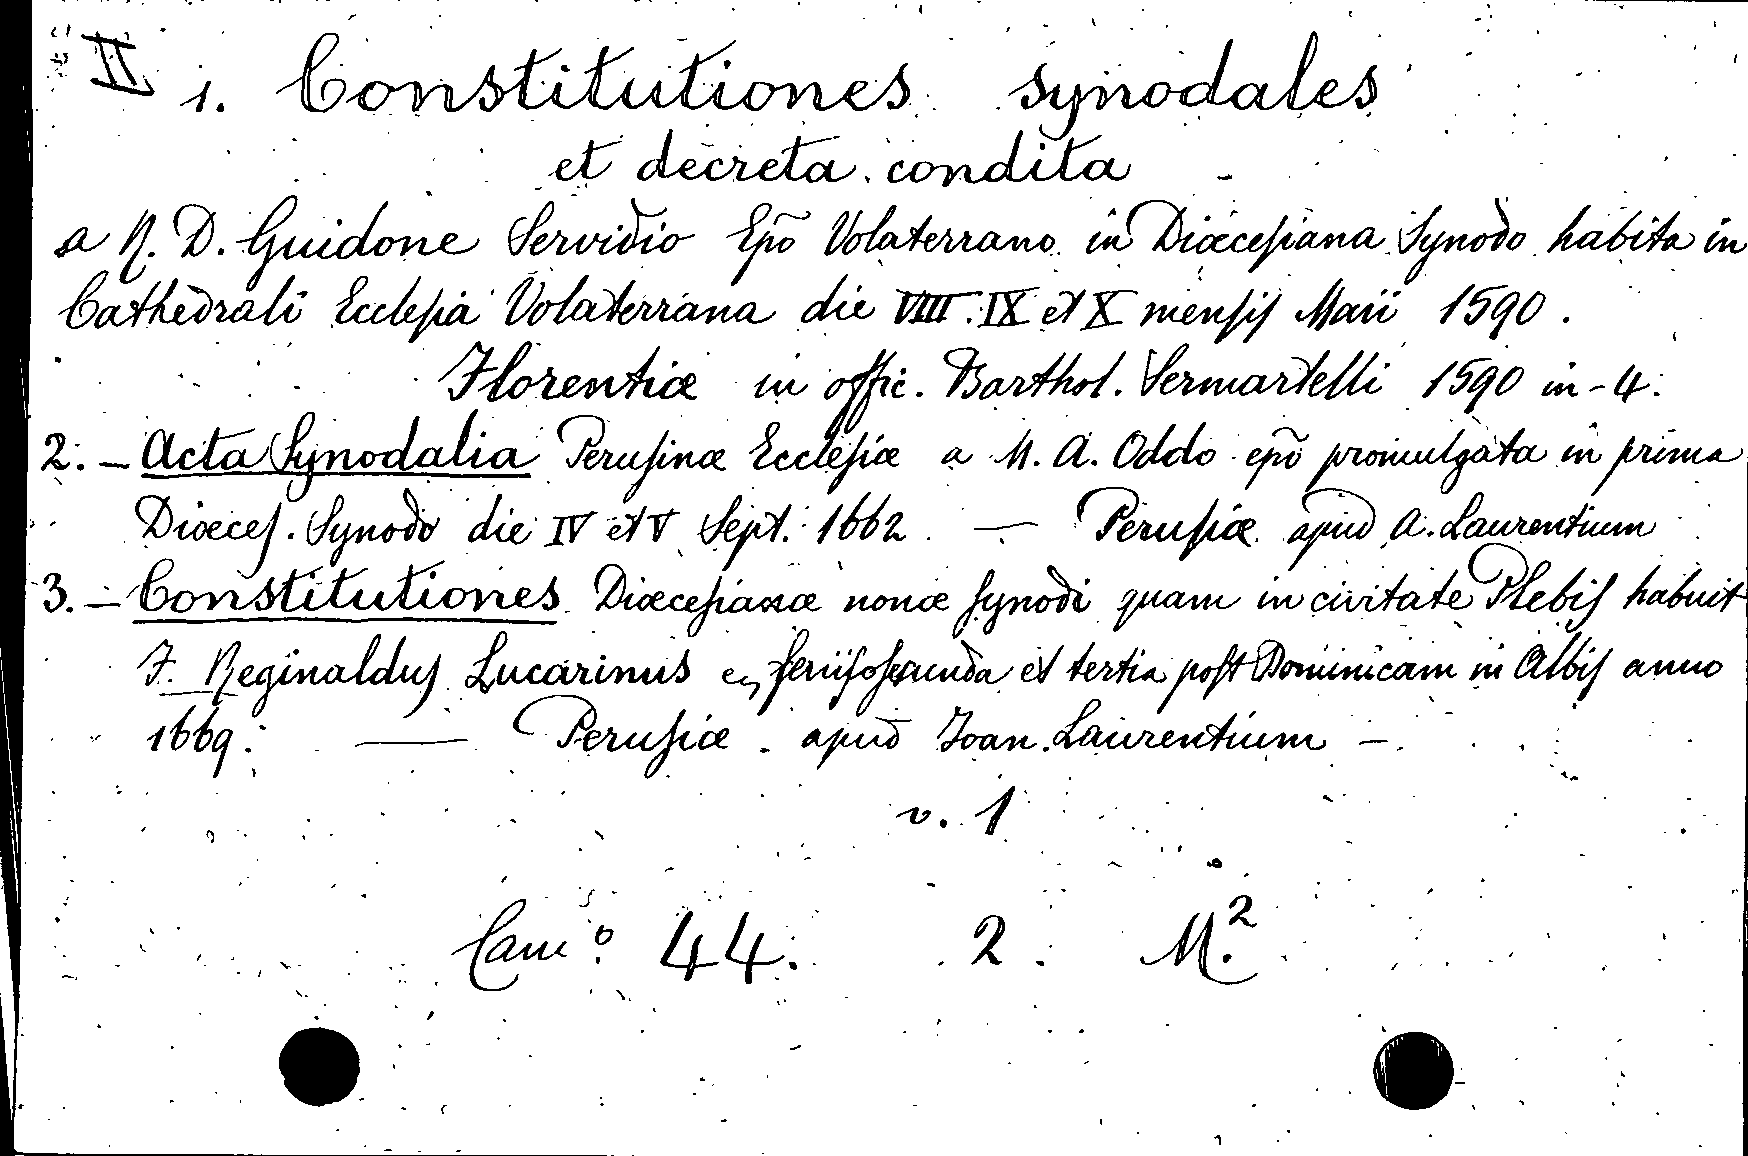 II 1. Constitutiones synodales
et decreta condita
a R. D. Guidone Servidio Epõ Volaterrano in Diœcesiana Synodo habita in
Cathedrali Ecclesia Volaterrana die VIII. IX et X mensis Maii 1590.
Florentiæ in offic. Barthol. Sermartelli 1590 in-4.
2. — Acta Synodalia Perusinæ Ecclesiæ a M. A. Oddo epõ promulgata in prima
Diœces. Synodo die IV et V Sept. 1662 — Perusiæ apud A. Laurentium
3. — Constitutiones Diœcesianæ nonæ synodi quam in civitate Plebis habuit
F. Reginaldus Lucarinus feriis secunda et tertia post Dominicam in Albis anno
1669. — Perusiæ. apud Joan. Laurentium —.
v. 1
Cam.º 44. 2. M.²